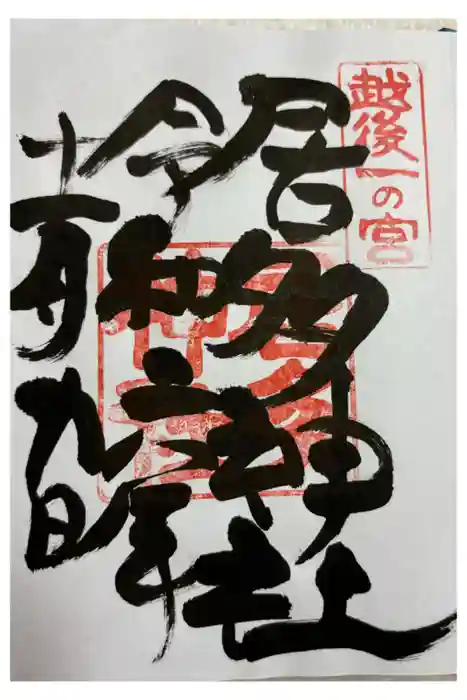 越後一の宮
居多神社
令和六年
十一月九日